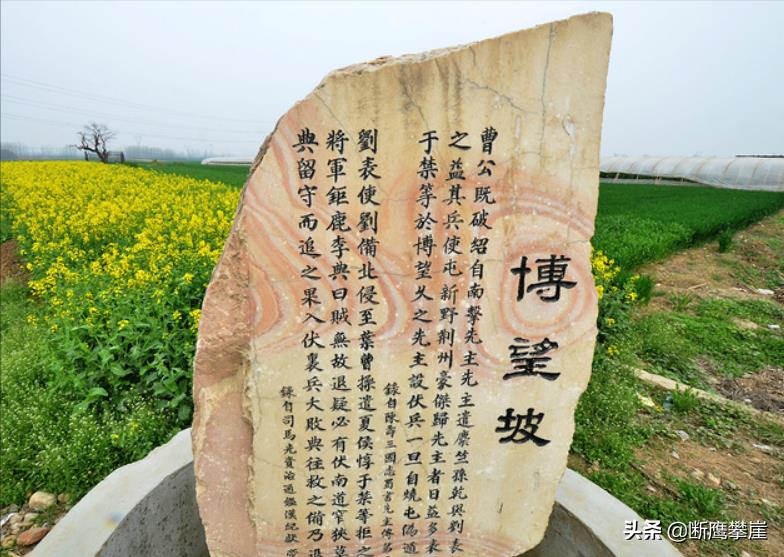 博望坡
曹公既破紹自南擊先主先主遣麋竺孫乾與劉表
之益其兵使屯新野荊州豪傑歸先主者日益多表
于禁等於博望久之先主設伏兵一旦自燒屯偽遁
錄自陳壽三國志蜀書先主傳第
劉表使劉備北侵至葉曹操遣夏侯惇于禁等拒之
將軍鉅鹿李典曰賊無故退疑必有伏南道窄狹草
典留守而追之果入伏裏兵大敗典往救之備乃退
錄自司馬光資治通鑑漢紀獻帝
头条 @断鹰攀崖